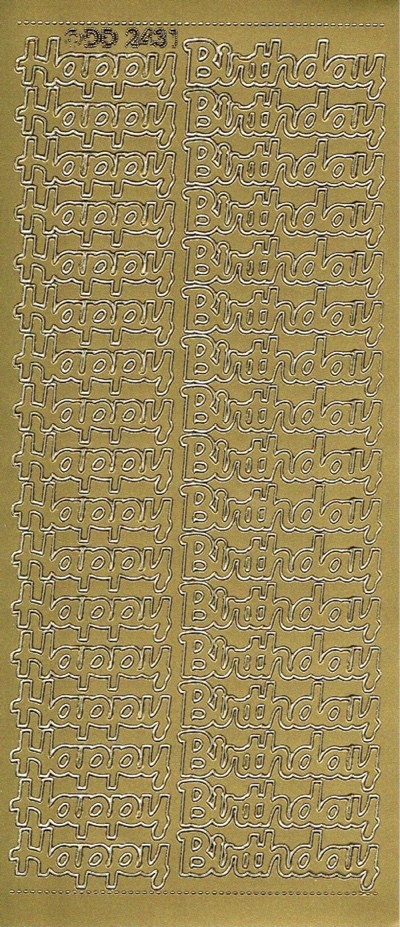 DD 2431
Happy Birthday
Happy Birthday
Happy Birthday
Happy Birthday
Happy Birthday
Happy Birthday
Happy Birthday
Happy Birthday
Happy Birthday
Happy Birthday
Happy Birthday
Happy Birthday
Happy Birthday
Happy Birthday
Happy Birthday
Happy Birthday
Happy Birthday